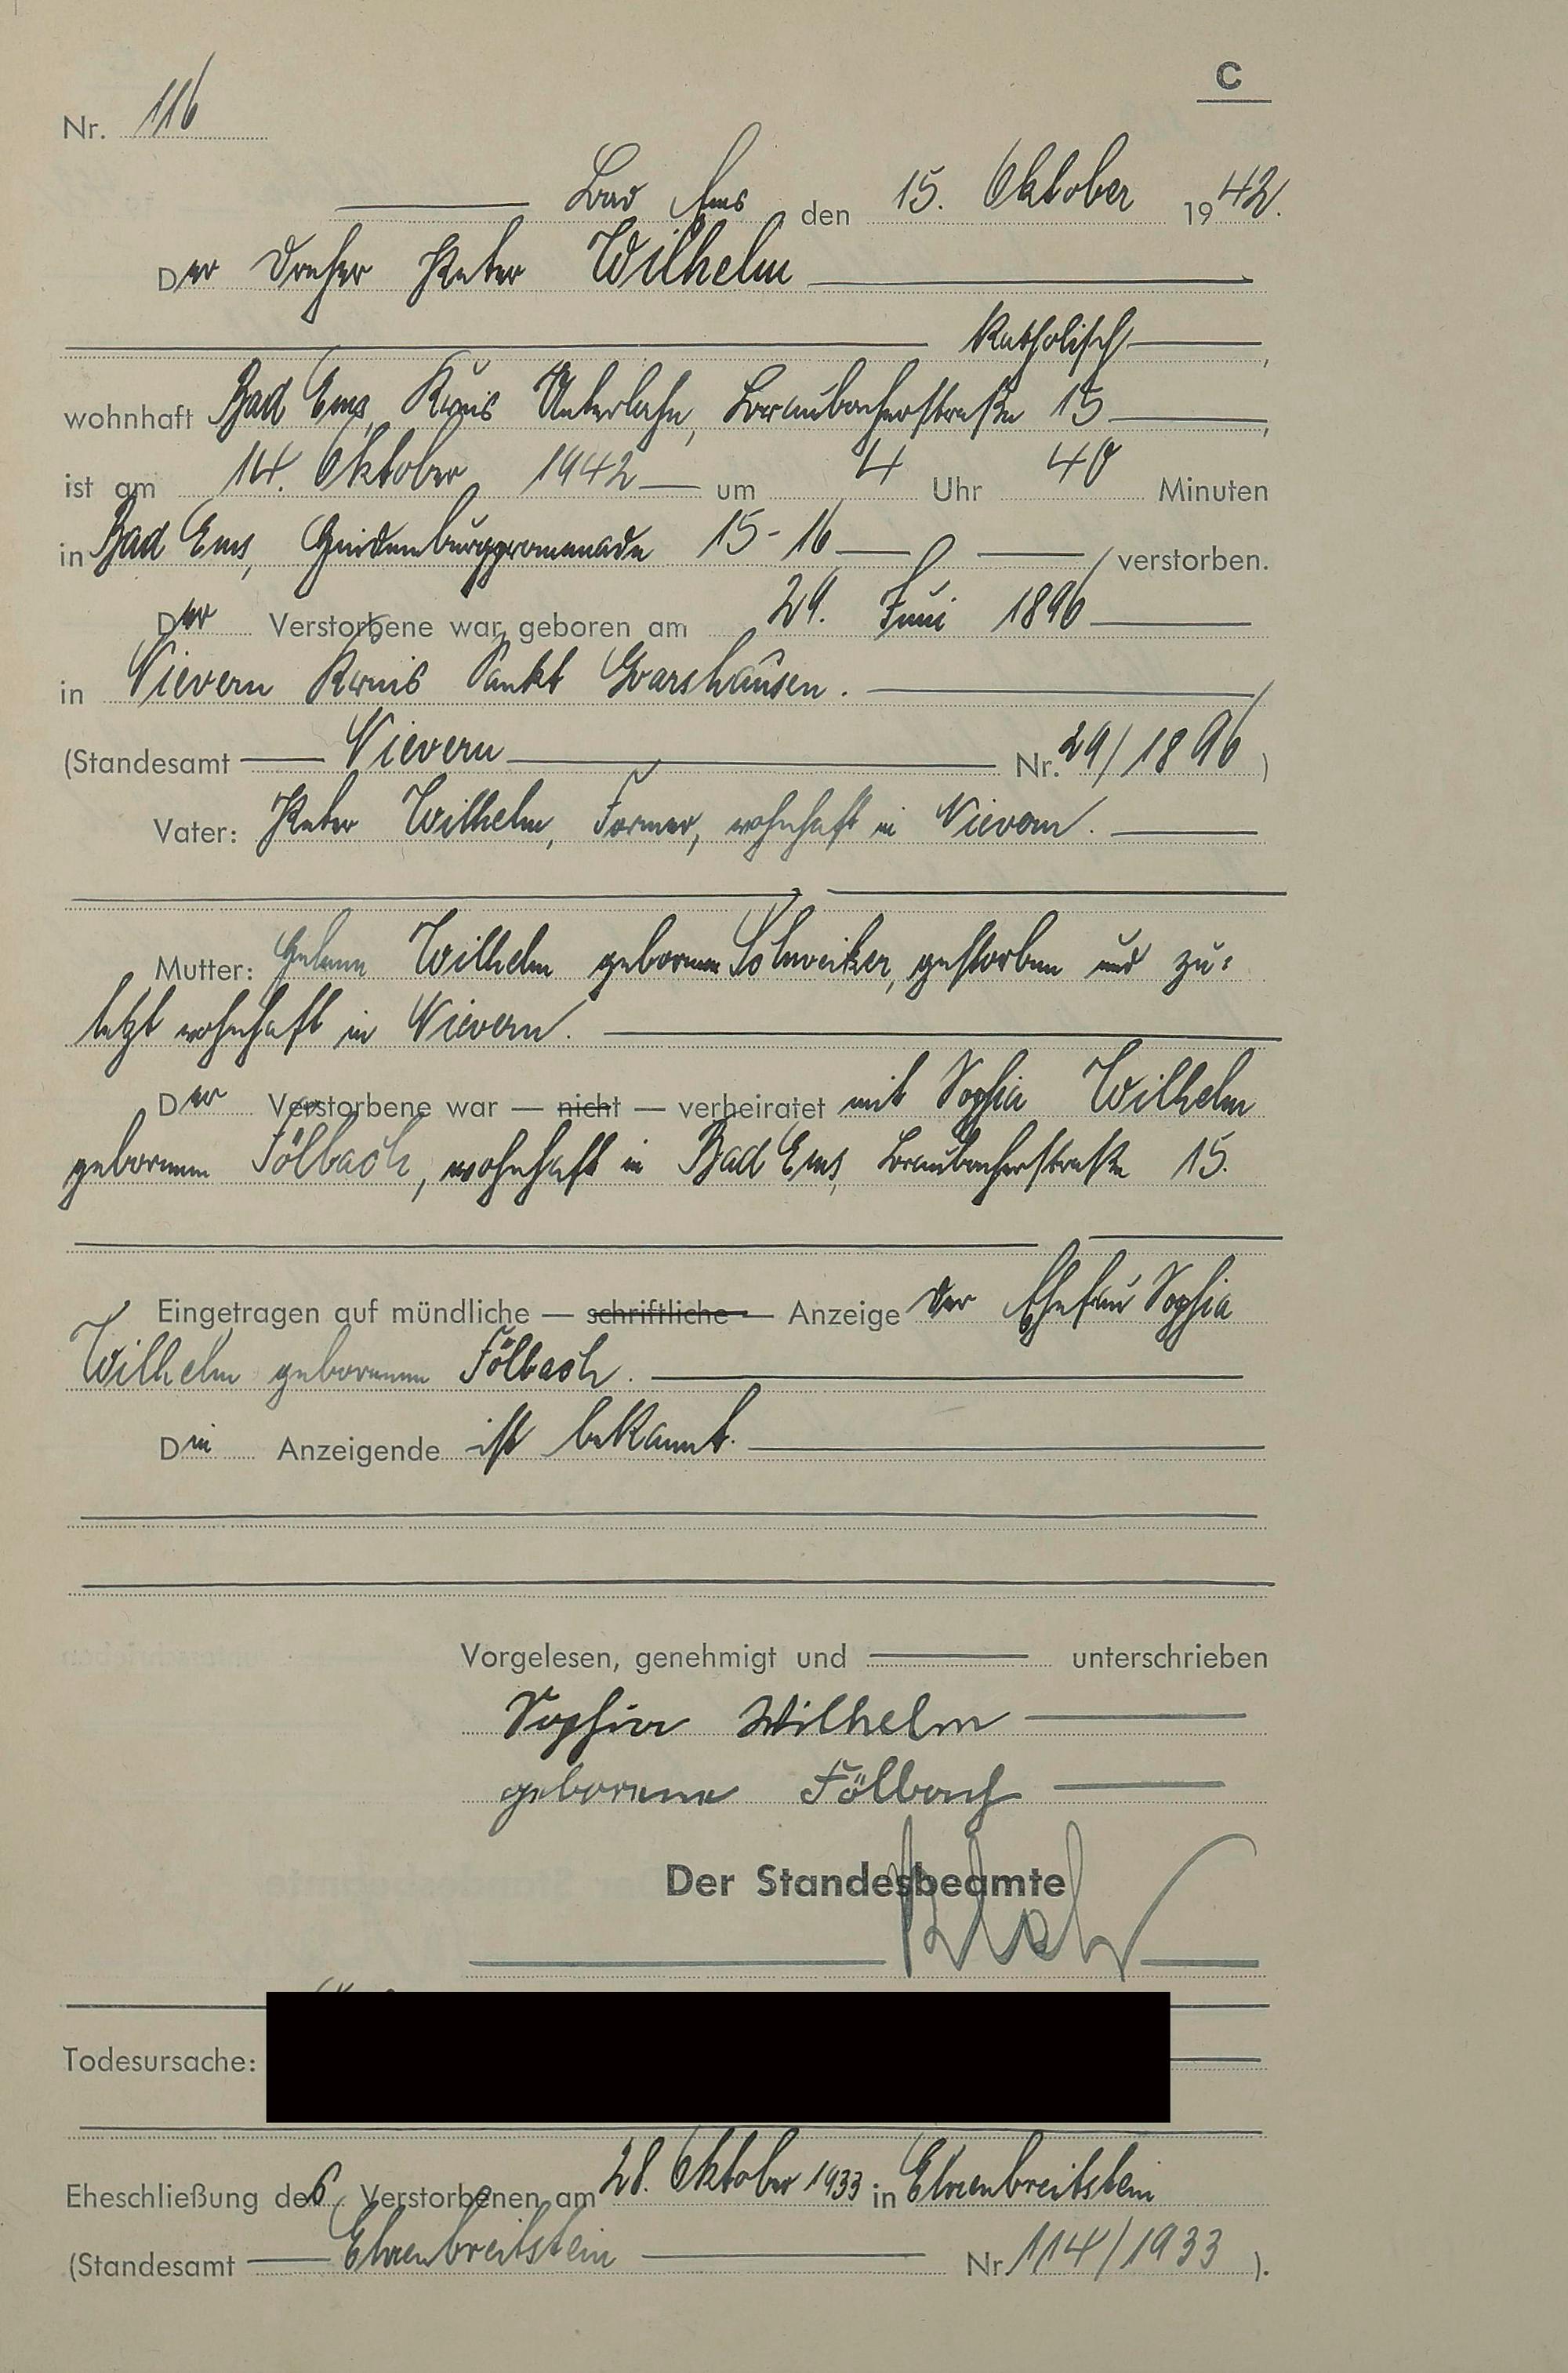 C
Nr. 116
Bad Ems den 15. Oktober 1942.
Der Dreher Peter Wilhelm
katholisch,
wohnhaft Bad Ems, Kreis Unterlahn, Braubacherstraße 15,
ist am 14. Oktober 1942 um 4 Uhr 40 Minuten
in Bad Ems, Hindenburgpromenade 15-16 verstorben.
Der Verstorbene war geboren am 29. Juni 1896
in Nievern Kreis Sankt Goarshausen.
(Standesamt Nievern Nr. 29/1896)
Vater: Peter Wilhelm, Former, wohnhaft in Nievern.
Mutter: Helene Wilhelm geborene Schweiker, gestorben und zu=
letzt wohnhaft in Nievern.
Der Verstorbene war — nicht — verheiratet mit Sophia Wilhelm
geborenen Fölbach, wohnhaft in Bad Ems, Braubacherstraße 15.
Eingetragen auf mündliche — schriftliche — Anzeige der Ehefrau Sophia
Wilhelm geborenen Fölbach.
Die Anzeigende ist bekannt.
Vorgelesen, genehmigt und unterschrieben
Sophia Wilhelm
geborene Fölbach
Der Standesbeamte
Todesursache:
Eheschließung des Verstorbenen am 28. Oktober 1933 in Ehrenbreitstein
(Standesamt Ehrenbreitstein Nr. 114/1933).